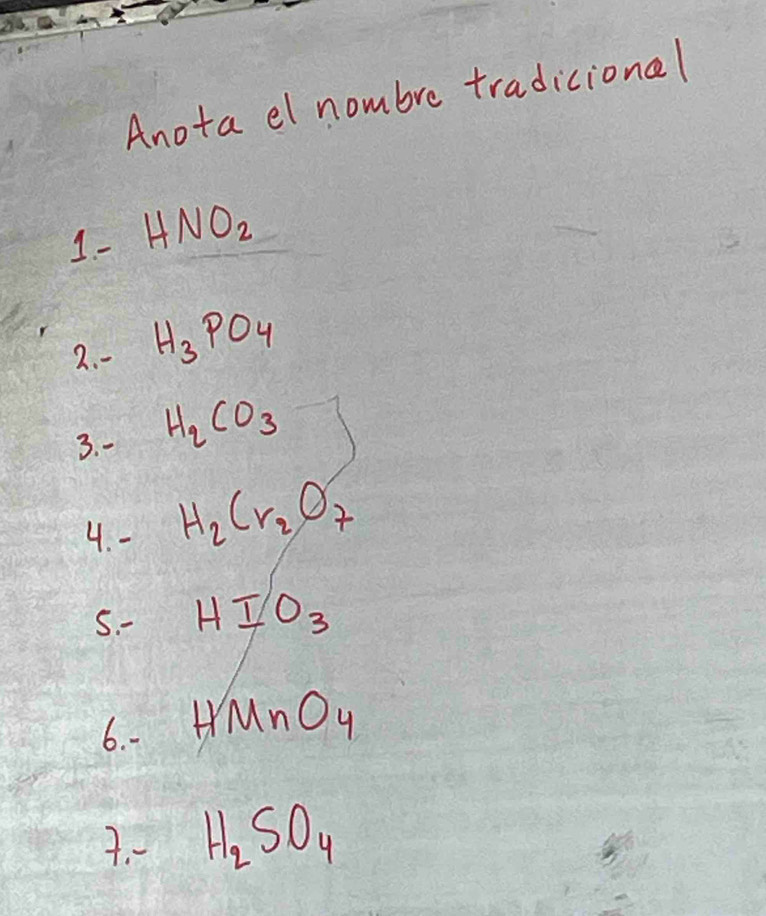 Anota el nombre tradicional
1.- HNO₂
2.- H₃PO₄
3.- H₂CO₃
4.- H₂Cr₂O₇
5.- HIO₃
6.- HMnO₄
7.- H₂SO₄